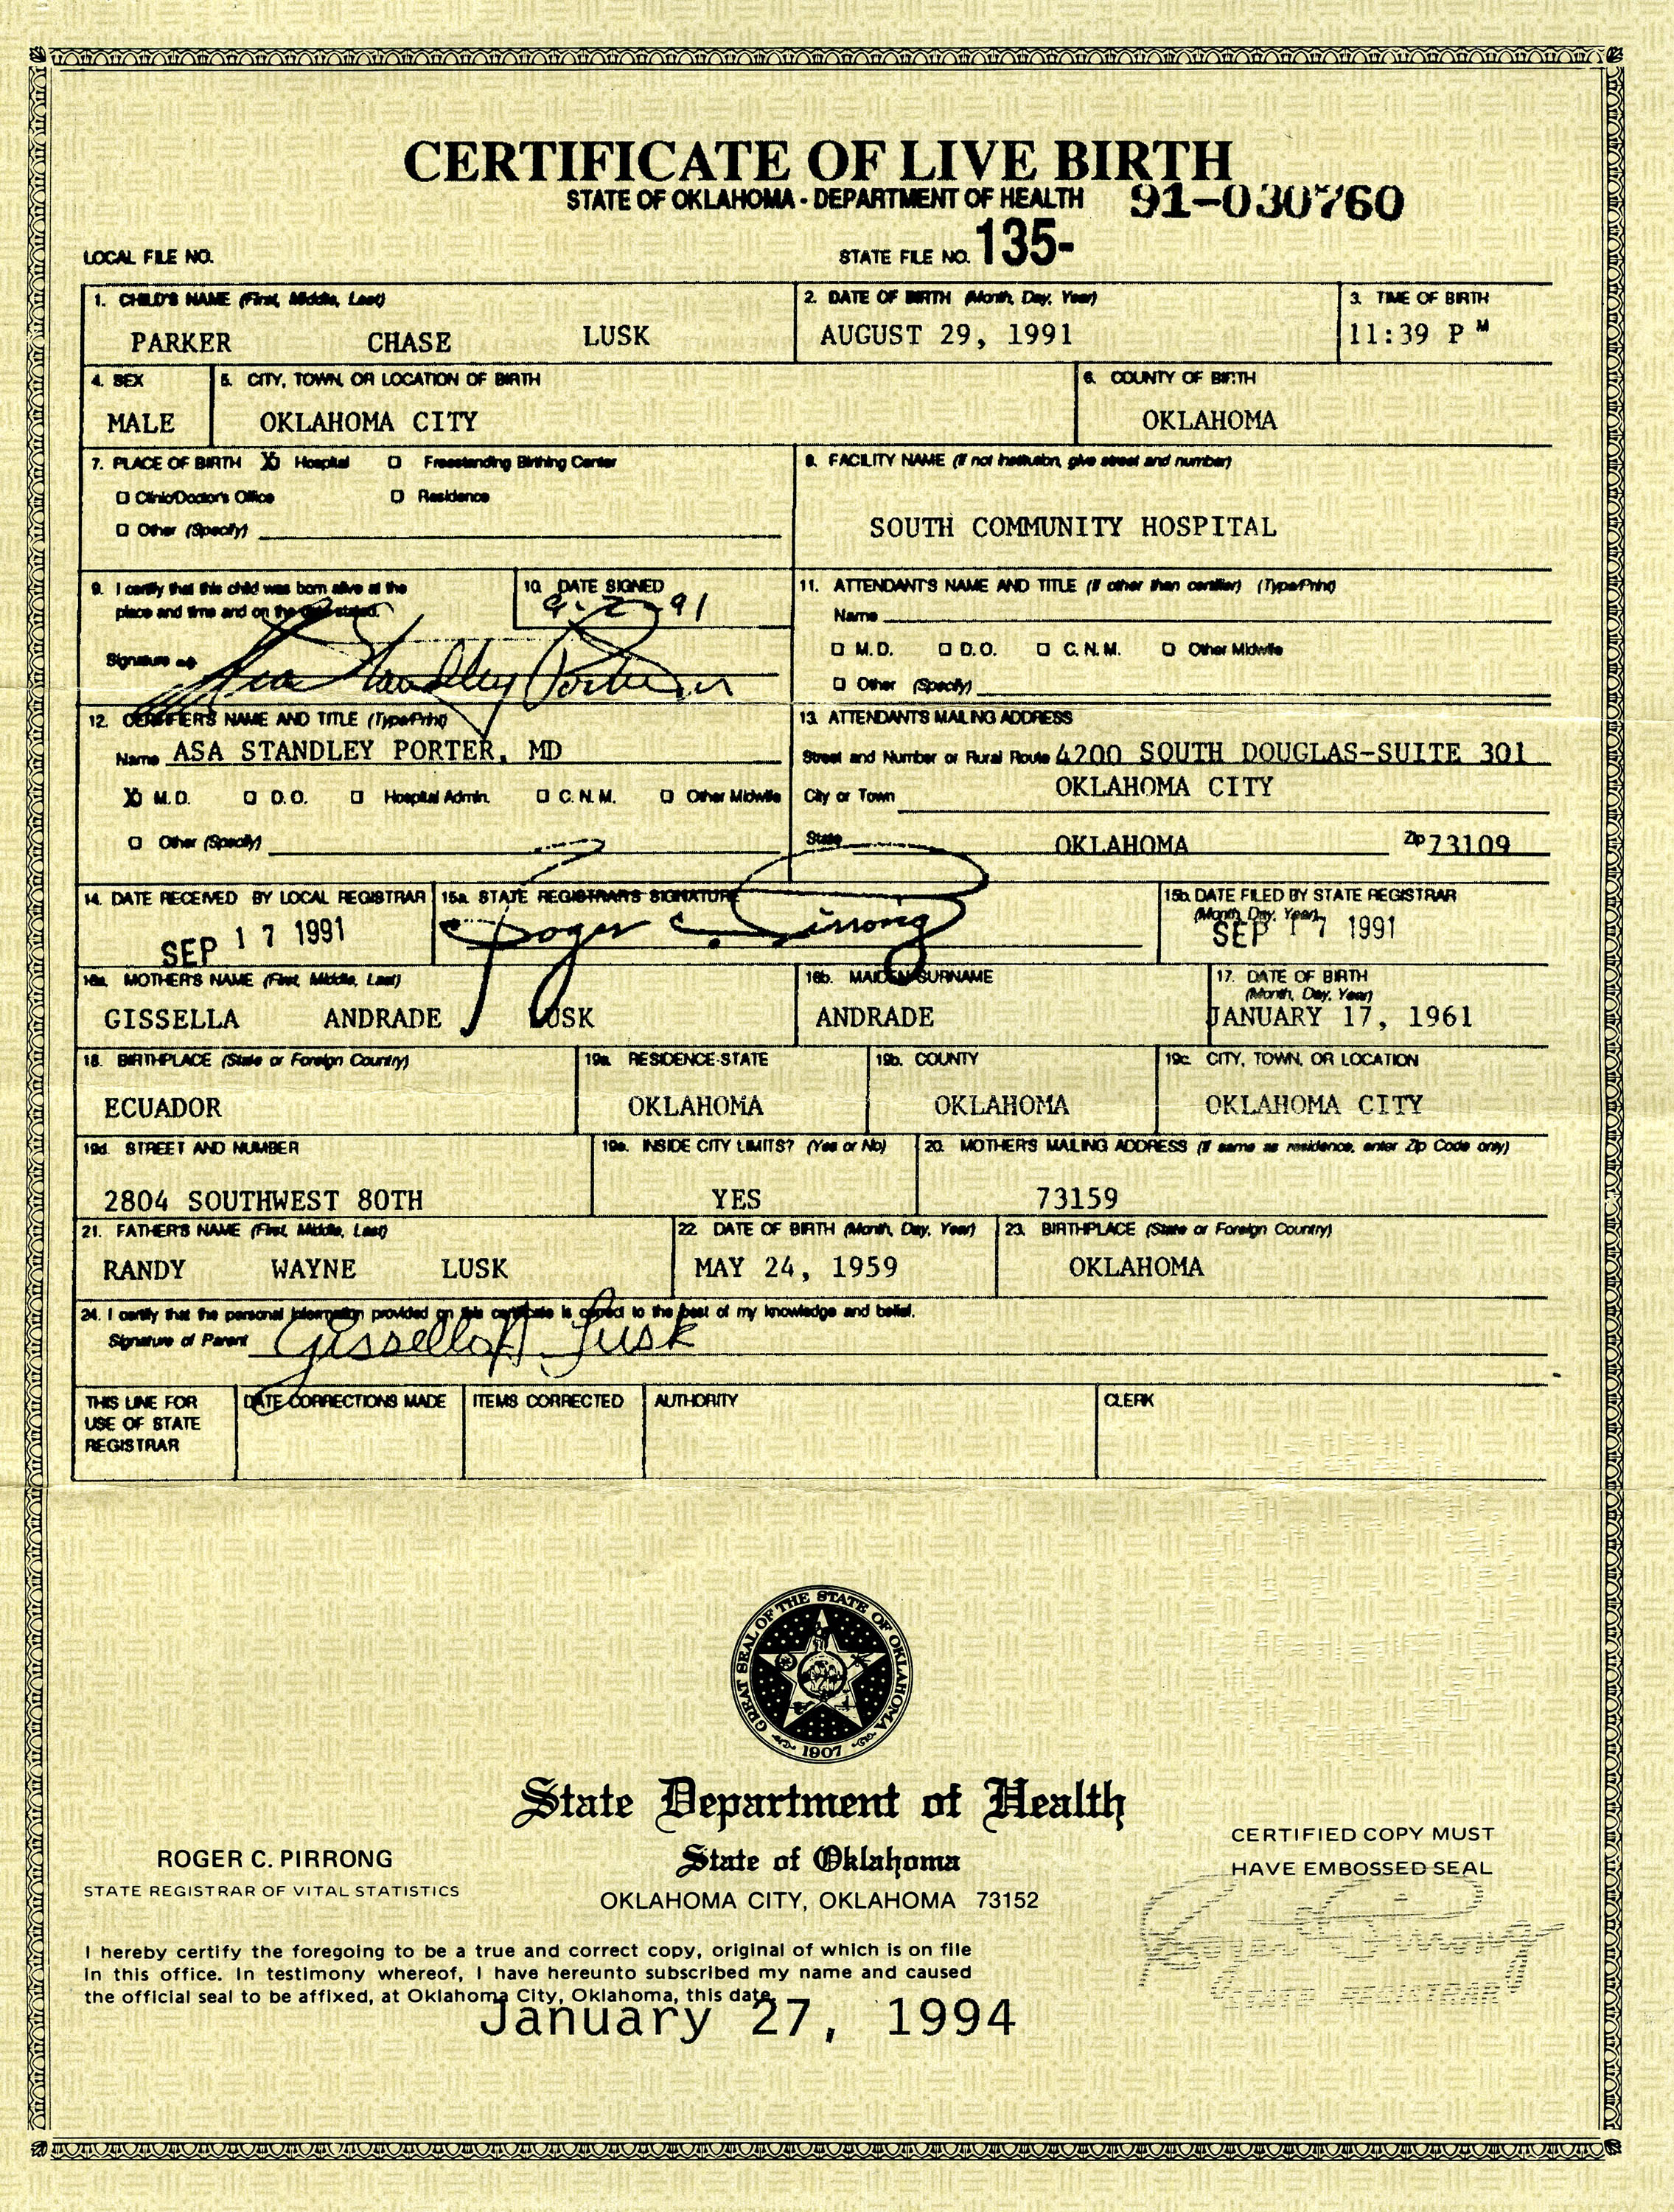 CERTIFICATE OF LIVE BIRTH
STATE OF OKLAHOMA - DEPARTMENT OF HEALTH 91-030760
LOCAL FILE NO. STATE FILE NO. 135-
1. CHILD'S NAME (First, Middle, Last) 2. DATE OF BIRTH (Month, Day, Year) 3. TIME OF BIRTH
PARKER CHASE LUSK AUGUST 29, 1991 11:39 P M
4. SEX 5. CITY, TOWN, OR LOCATION OF BIRTH 6. COUNTY OF BIRTH
MALE OKLAHOMA CITY OKLAHOMA
7. PLACE OF BIRTH X Hospital Freestanding Birthing Center 8. FACILITY NAME (If not institution, give street and number)
Clinic/Doctor's Office Residence
Other (Specify) SOUTH COMMUNITY HOSPITAL
9. I certify that this child was born alive at the 10. DATE SIGNED 11. ATTENDANT'S NAME AND TITLE (If other than certifier) (Type/Print)
place and time and on the date stated. 9-2-91 Name
Signature Asa Standley Porter M.D. D.O. C.N.M. Other Midwife
Other (Specify)
12. CERTIFIER'S NAME AND TITLE (Type/Print) 13. ATTENDANT'S MAILING ADDRESS
Name ASA STANDLEY PORTER, MD Street and Number or Rural Route 4200 SOUTH DOUGLAS-SUITE 301
X M.D. D.O. Hospital Admin. C.N.M. Other Midwife City or Town OKLAHOMA CITY
Other (Specify) State OKLAHOMA Zip 73109
14. DATE RECEIVED BY LOCAL REGISTRAR 15a. STATE REGISTRAR'S SIGNATURE 15b. DATE FILED BY STATE REGISTRAR
(Month, Day, Year)
SEP 17 1991 Roger C. Pirrong SEP 17 1991
16a. MOTHER'S NAME (First, Middle, Last) 16b. MAIDEN SURNAME 17. DATE OF BIRTH
(Month, Day, Year)
GISSELLA ANDRADE LUSK ANDRADE JANUARY 17, 1961
18. BIRTHPLACE (State or Foreign Country) 19a. RESIDENCE-STATE 19b. COUNTY 19c. CITY, TOWN, OR LOCATION
ECUADOR OKLAHOMA OKLAHOMA OKLAHOMA CITY
19d. STREET AND NUMBER 19e. INSIDE CITY LIMITS? (Yes or No) 20. MOTHER'S MAILING ADDRESS (If same as residence, enter Zip Code only)
2804 SOUTHWEST 80TH YES 73159
21. FATHER'S NAME (First, Middle, Last) 22. DATE OF BIRTH (Month, Day, Year) 23. BIRTHPLACE (State or Foreign Country)
RANDY WAYNE LUSK MAY 24, 1959 OKLAHOMA
24. I certify that the personal information provided on this certificate is correct to the best of my knowledge and belief.
Signature of Parent Gissella A Lusk
THIS LINE FOR DATE CORRECTIONS MADE ITEMS CORRECTED AUTHORITY CLERK
USE OF STATE
REGISTRAR
GREAT SEAL OF THE STATE OF OKLAHOMA
1907
State Department of Health
State of Oklahoma
OKLAHOMA CITY, OKLAHOMA 73152
ROGER C. PIRRONG
STATE REGISTRAR OF VITAL STATISTICS
CERTIFIED COPY MUST
HAVE EMBOSSED SEAL
Roger C. Pirrong
STATE REGISTRAR
I hereby certify the foregoing to be a true and correct copy, original of which is on file
in this office. In testimony whereof, I have hereunto subscribed my name and caused
the official seal to be affixed, at Oklahoma City, Oklahoma, this date.
January 27, 1994